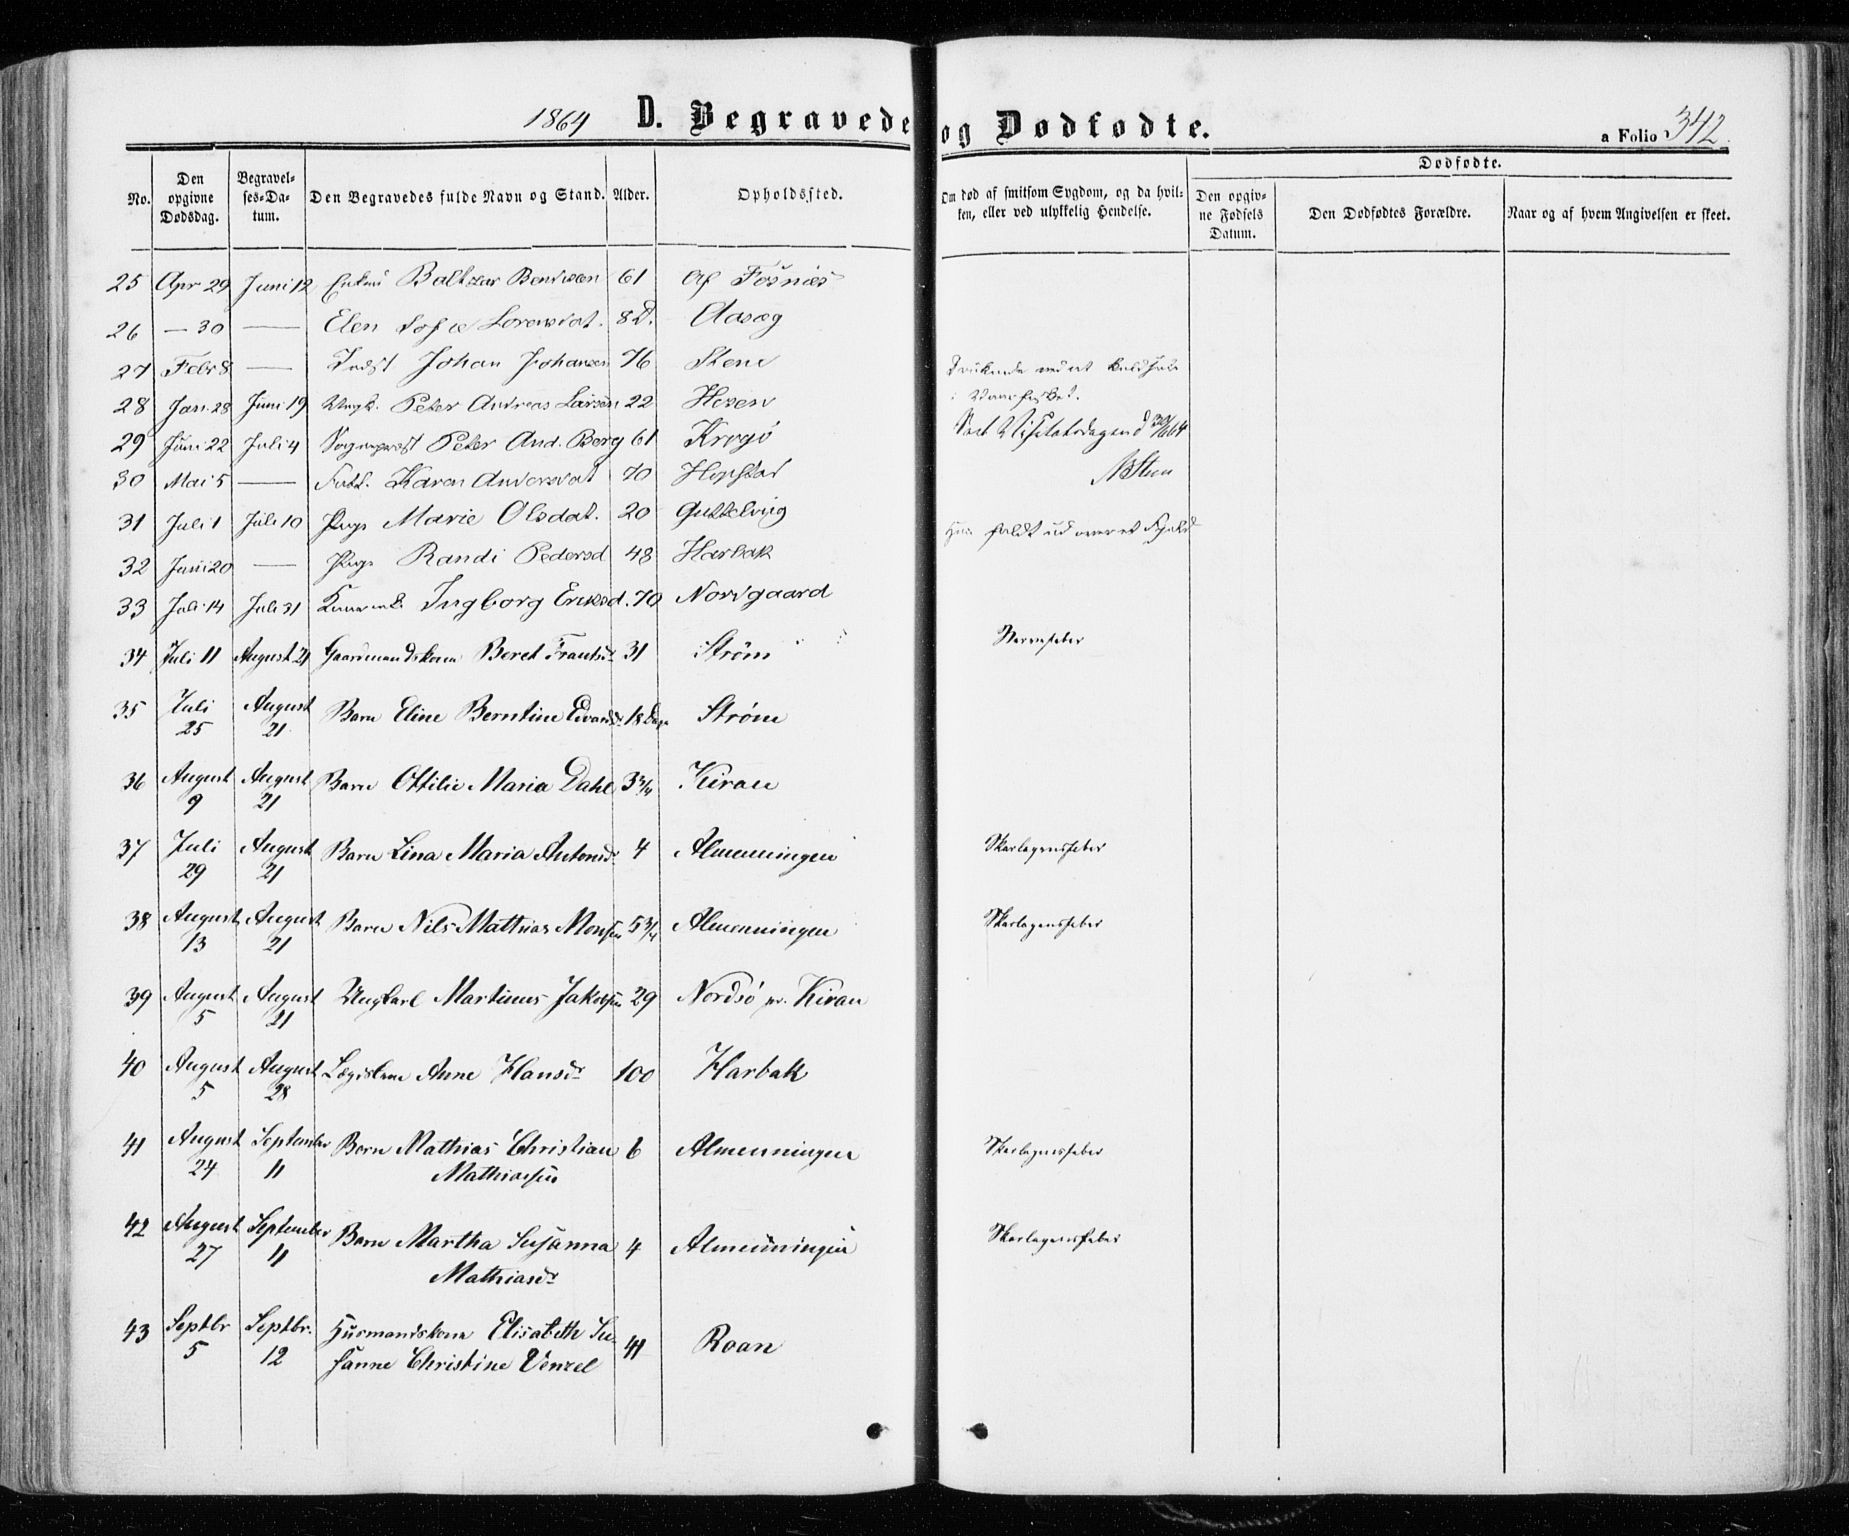 1864 D. Begravede og Dodfodte. a Folio 342.
No. Den opgivne Dødsdag. Begravelses-Datum. Den Begravedes fulde Navn og Stand. Alder. Opholdssted. Om død af smitsom Sygdom, og da hvilken, eller ved ulykkelig Hendelse. Dødfødte. Den opgivne Fødsels Datum. Den Dødfødtes Forældre. Naar og af hvem Angivelsen er skeet.
25 Apr 29 Juni 12 Baltzar 61 af Fosnæs
26 — 30 — Elen Sofie Lorensdat. 8 D. Aasæg
27 Febr 8 — Johan Johansen 76 Stene
28 Jan. 28 Juni 19 Ungk. Peter Andreas Larsen 22 Hesen
29 Juni 22 Juli 4 Sogneprest Peter And. Berg 61 Krogö
30 Mai 5 — Karen Andersdat 70 Hopstad
31 Juli 1 Juli 10 Pige Marie Olsdat. 20 faldt ud over et
32 Juni 20 — Pige Randi Pedersd 48 Harbak
33 Juli 14 Juli 31 Ingborg Eriksd. 70 Nordgaard
34 Juli 11 August 21 Gaardmandskone Beret Frantsdr 31 Strøm Nervefeber
35 Juli 25 August 21 Barn Eline Berntine Edvardsdr 18 Dage Strøm
36 August 9 August 21 Barn Ottilie Maria Dahl 3 3/4 Kiran
37 Juli 29 August 21 Barn Lina Maria Antonsdr 4 Almenningen Skarlagensfeber
38 August 13 August 21 Barn Nils Mathias Monsen 5 3/4 Almenningen Skarlagensfeber
39 August 5 August 21 Ungkarl Martinus Jakobsen 29 Nordsö pr. Kiran
40 August 5 August 28 Anne Hansdr 100 Harbak
41 August 24 September 11 Barn Mathias Christian 6 Almenningen Skarlagensfeber
Mathiassen
42 August 27 September 11 Barn Martha Susanna 4 Almenningen Skarlagensfeber
Mathiasdr
43 Septbr 5 Septbr. 12 Husmandskone Elisabeth Su- 41 Roan
sanne Christine Venzel